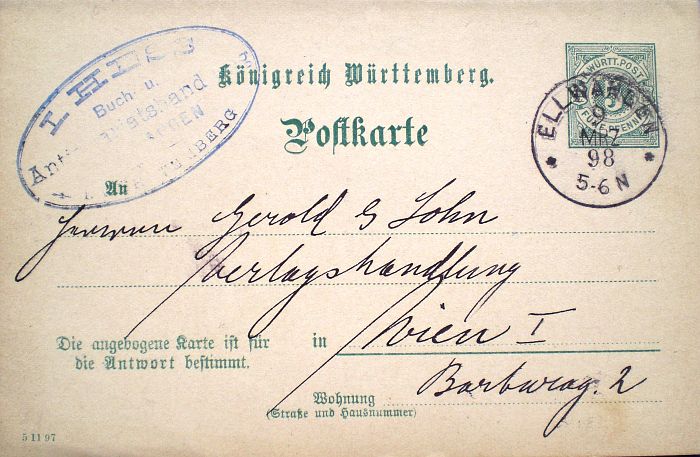 I. HESS
Buch- u.
Antiquariatshand
ELLWANGEN
WÜRTTEMBERG
Königreich Württemberg.
Postkarte
K. WÜRTT. POST
5
FÜNF PFENNIG
ELLWANGEN
9
MRZ
98
5-6 N
An
Herren Gerold & Sohn
Verlagshandlung
Die angebogene Karte ist für
die Antwort bestimmt.
in Wien I
Barbarag. 2
Wohnung
(Straße und Hausnummer)
5 11 97